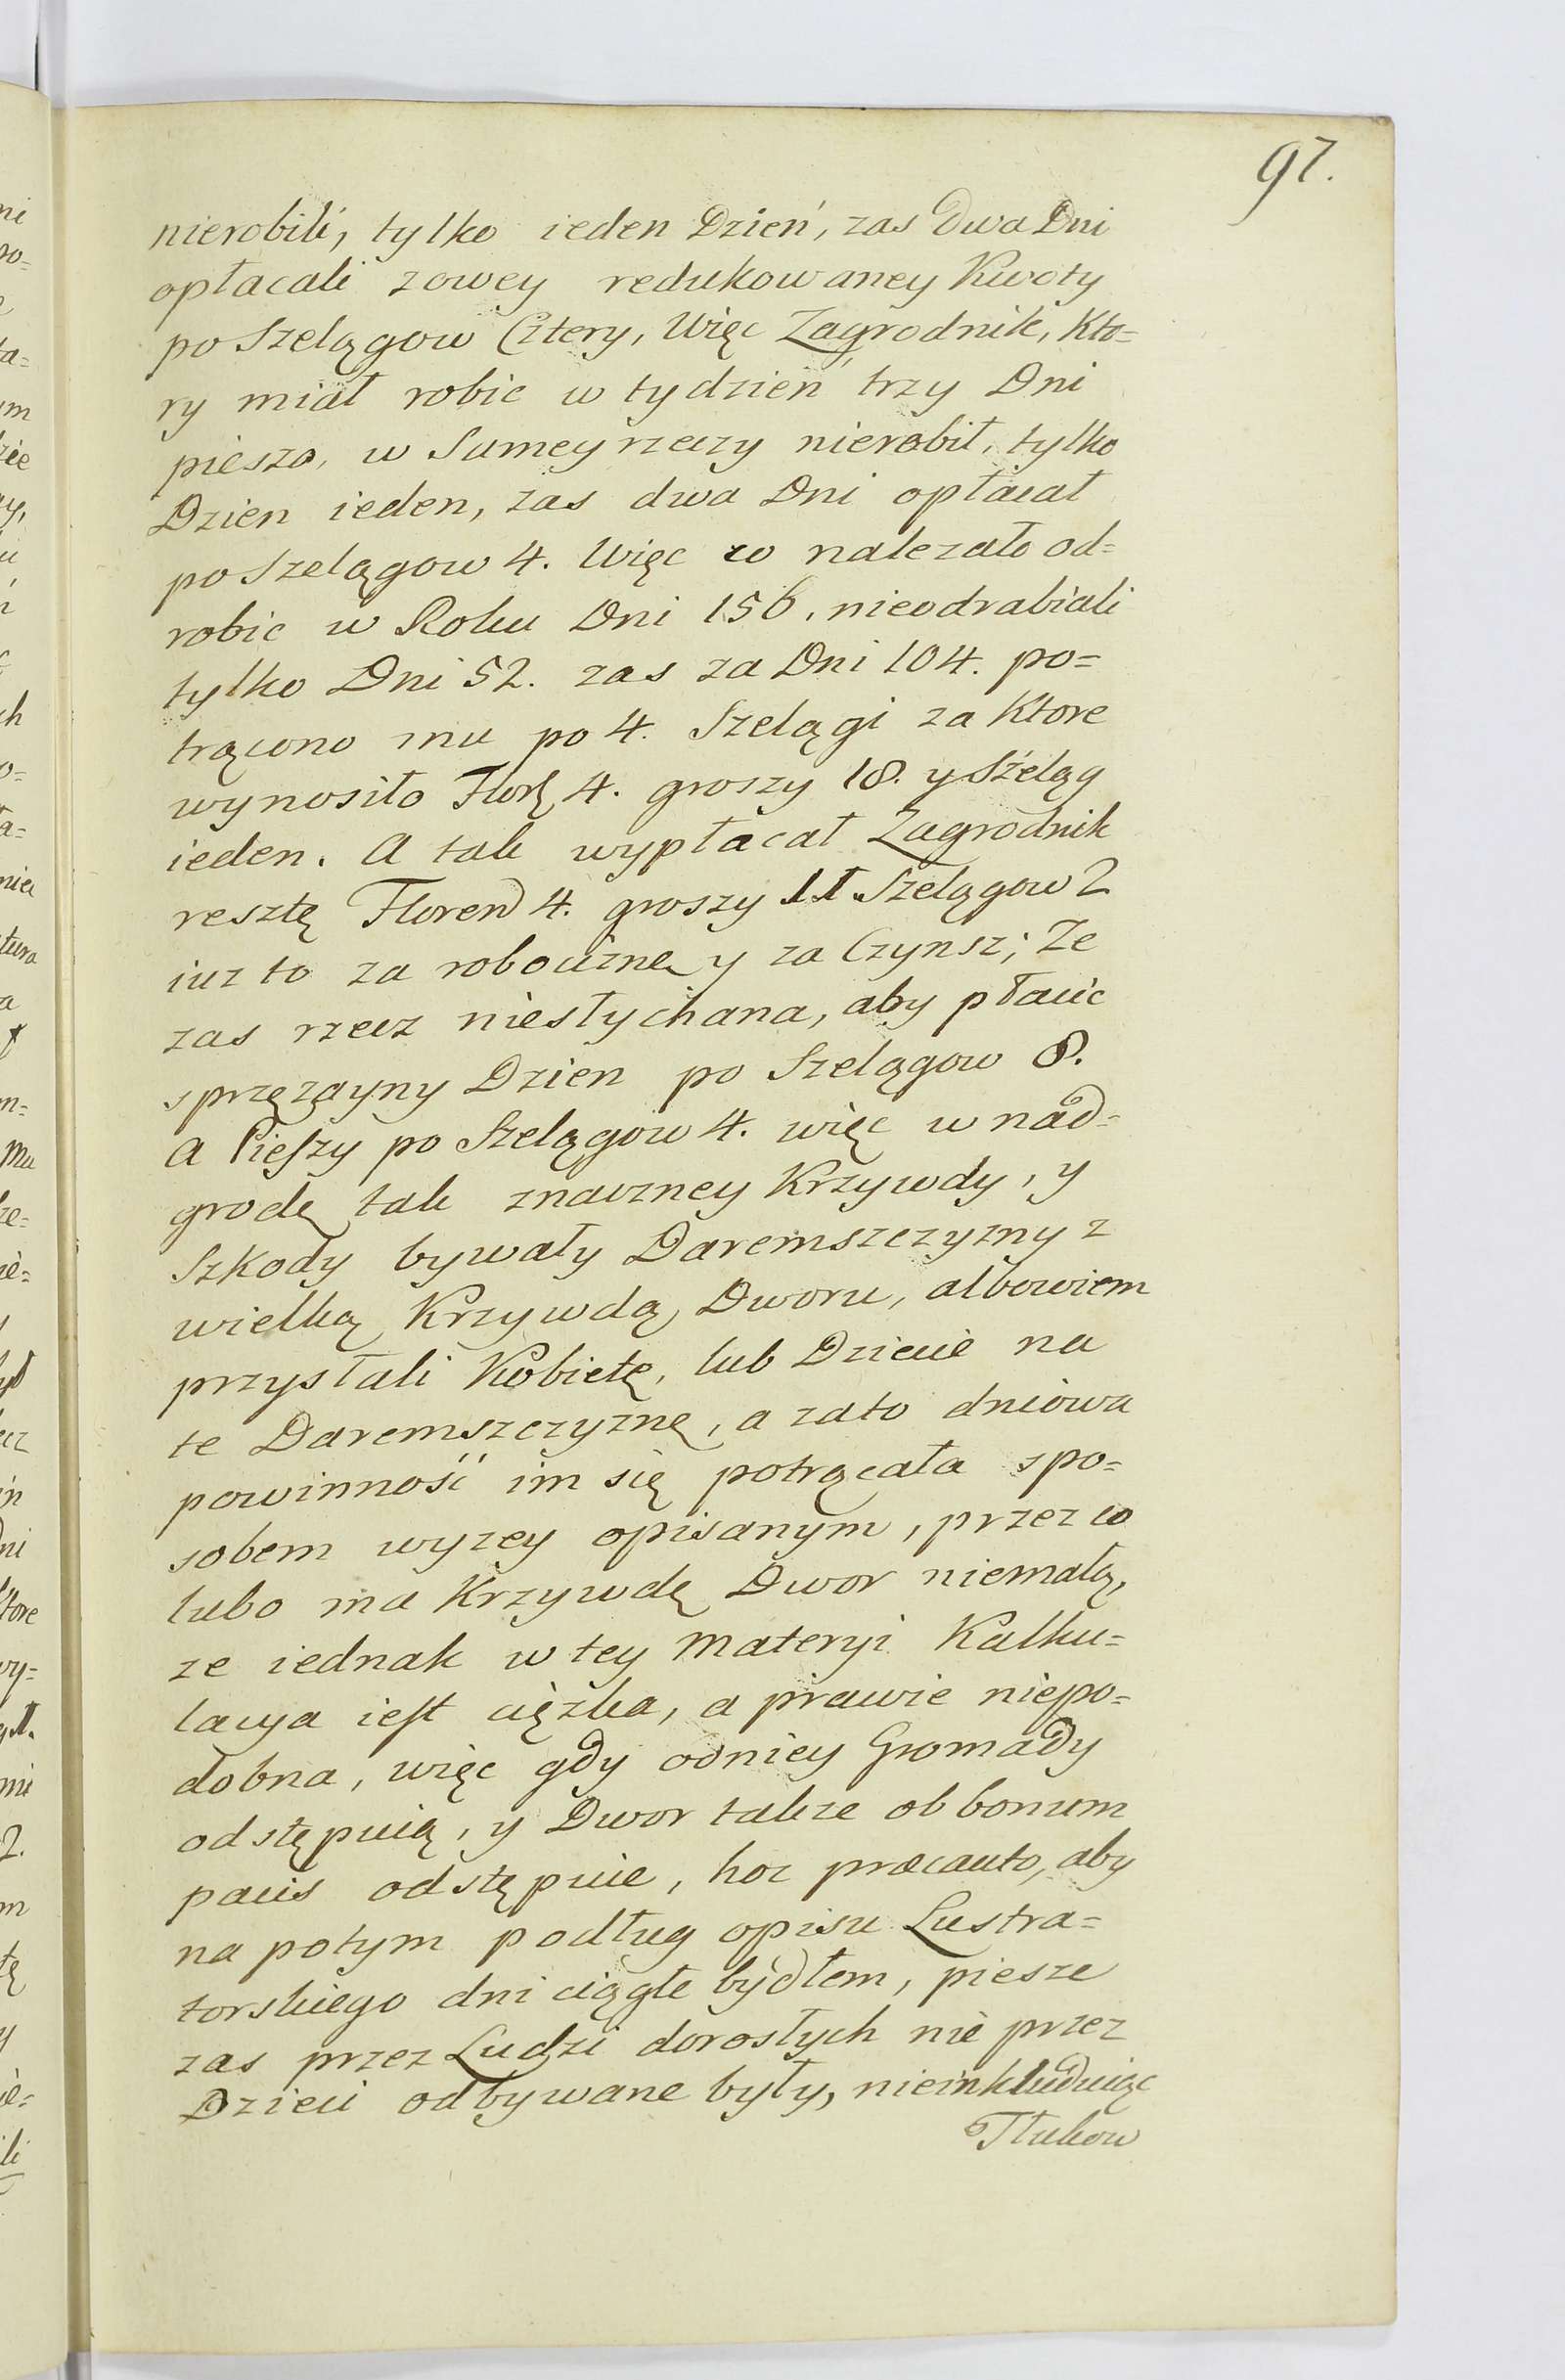 97.
nierobili, tylko ieden Dzień, zas Dwa Dni
opłacali zowey redukowaney Kwoty
po Szelągow Cztery, Więc Zagrodnik, Kto=
ry miał robic w tydzień trzy Dni
pieszo, w Samey rzeczy nierobił, tylko
Dzien ieden, zas dwa Dni opłacał
po Szelągow 4. Więc co nalezało od=
robic w Roku Dni 156, nieodrabiali
tylko Dni 52. zas za Dni 104. po=
trącono mu po 4. Szelągi za Ktore
wynosiło Flor 4. groszy 18. y Szeląg
ieden. A tak wypłacał Zagrodnik
resztę Floren 4. groszy 11 Szelągow 2
iuz to za robociznę y za Czynsz; Ze
zas rzecz niesłychana, aby płacic
sprzęzayny Dzien po Szelągow 8.
a Pieszy po Szelągow 4. więc w nad=
grodę tak znaczney Krzywdy, y
Szkody bywały Daremszczyzny z
wielką Krzywdą Dworu, albowiem
przysłali Kobietę, lub Dziecie na
te Daremszczyznę, a zato dniowa
powinność im się potrącała spo=
sobem wyzey opisanym, przez co
lubo ma Krzywdę Dwor niemałą,
ze iednak w tey materyi Kalku=
lacya iest cięzka, a prawie niepo=
dobna, więc gdy odniey Gromady
odstępuią, y Dwor takze ob bonum
pacis odstępuie, hoc præcauto, aby
na potym podług opisu Lustra=
torskiego dni ciągłe bydłem, piesze
zas przez Ludzi dorosłych nie przez
Dzieci odbywane były, nieinkluduiąc
Tłukow